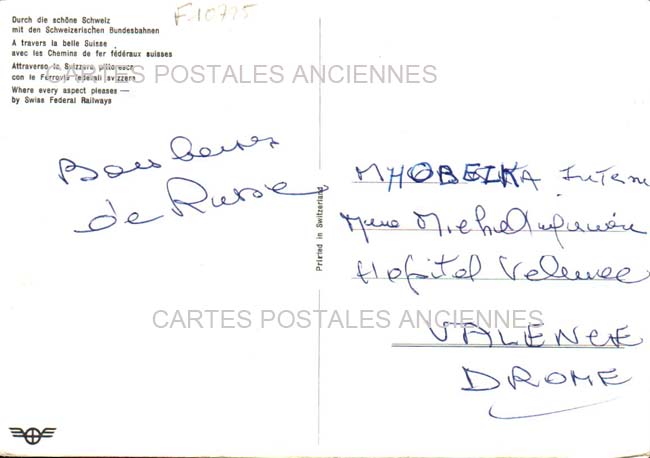 F.10725
Durch die schöne Schweiz
mit den Schweizerischen Bundesbahnen
A travers la belle Suisse
avec les Chemins de fer fédéraux suisses
Attraverso la Svizzera pittoresca
con le Ferrovie federali svizzere
Where every aspect pleases —
by Swiss Federal Railways
CARTES POSTALES ANCIENNES
de Russie
Printed in Switzerland
M HOBEIKA Interne
Hopital Valence
CARTES POSTALES ANCIENNES
VALENCE
DROME